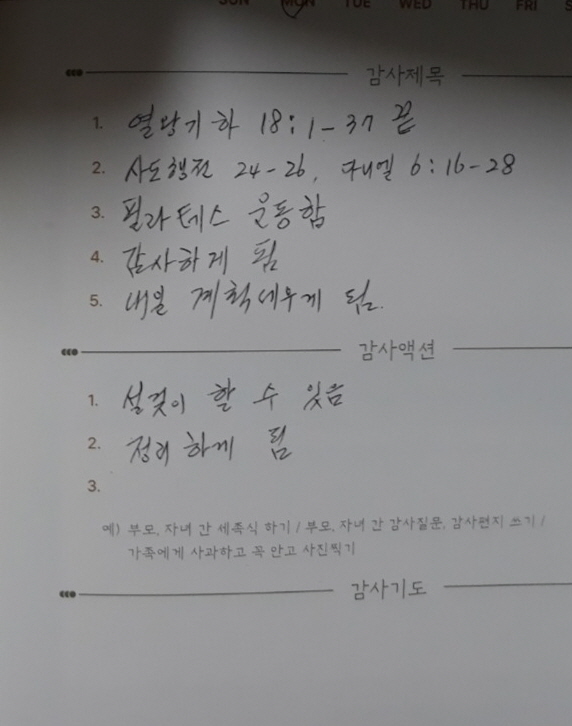 SUN MON TUE WED THU FRI S
감사제목
1. 열왕기하 18:1-37 끝
2. 사도행전 24-26, 다니엘 6:16-28
3. 필라테스 운동함
4. 감사하게 됨
5. 내일 계획세우게 됨.
감사액션
1. 설겆이 할 수 있음
2. 정리하게 됨
3.
예) 부모, 자녀 간 세족식 하기 / 부모, 자녀 간 감사질문, 감사편지 쓰기 /
가족에게 사과하고 꼭 안고 사진찍기
감사기도